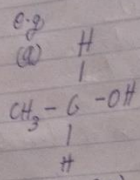 e.g
(a) H
|
CH₃ - C - OH
|
H